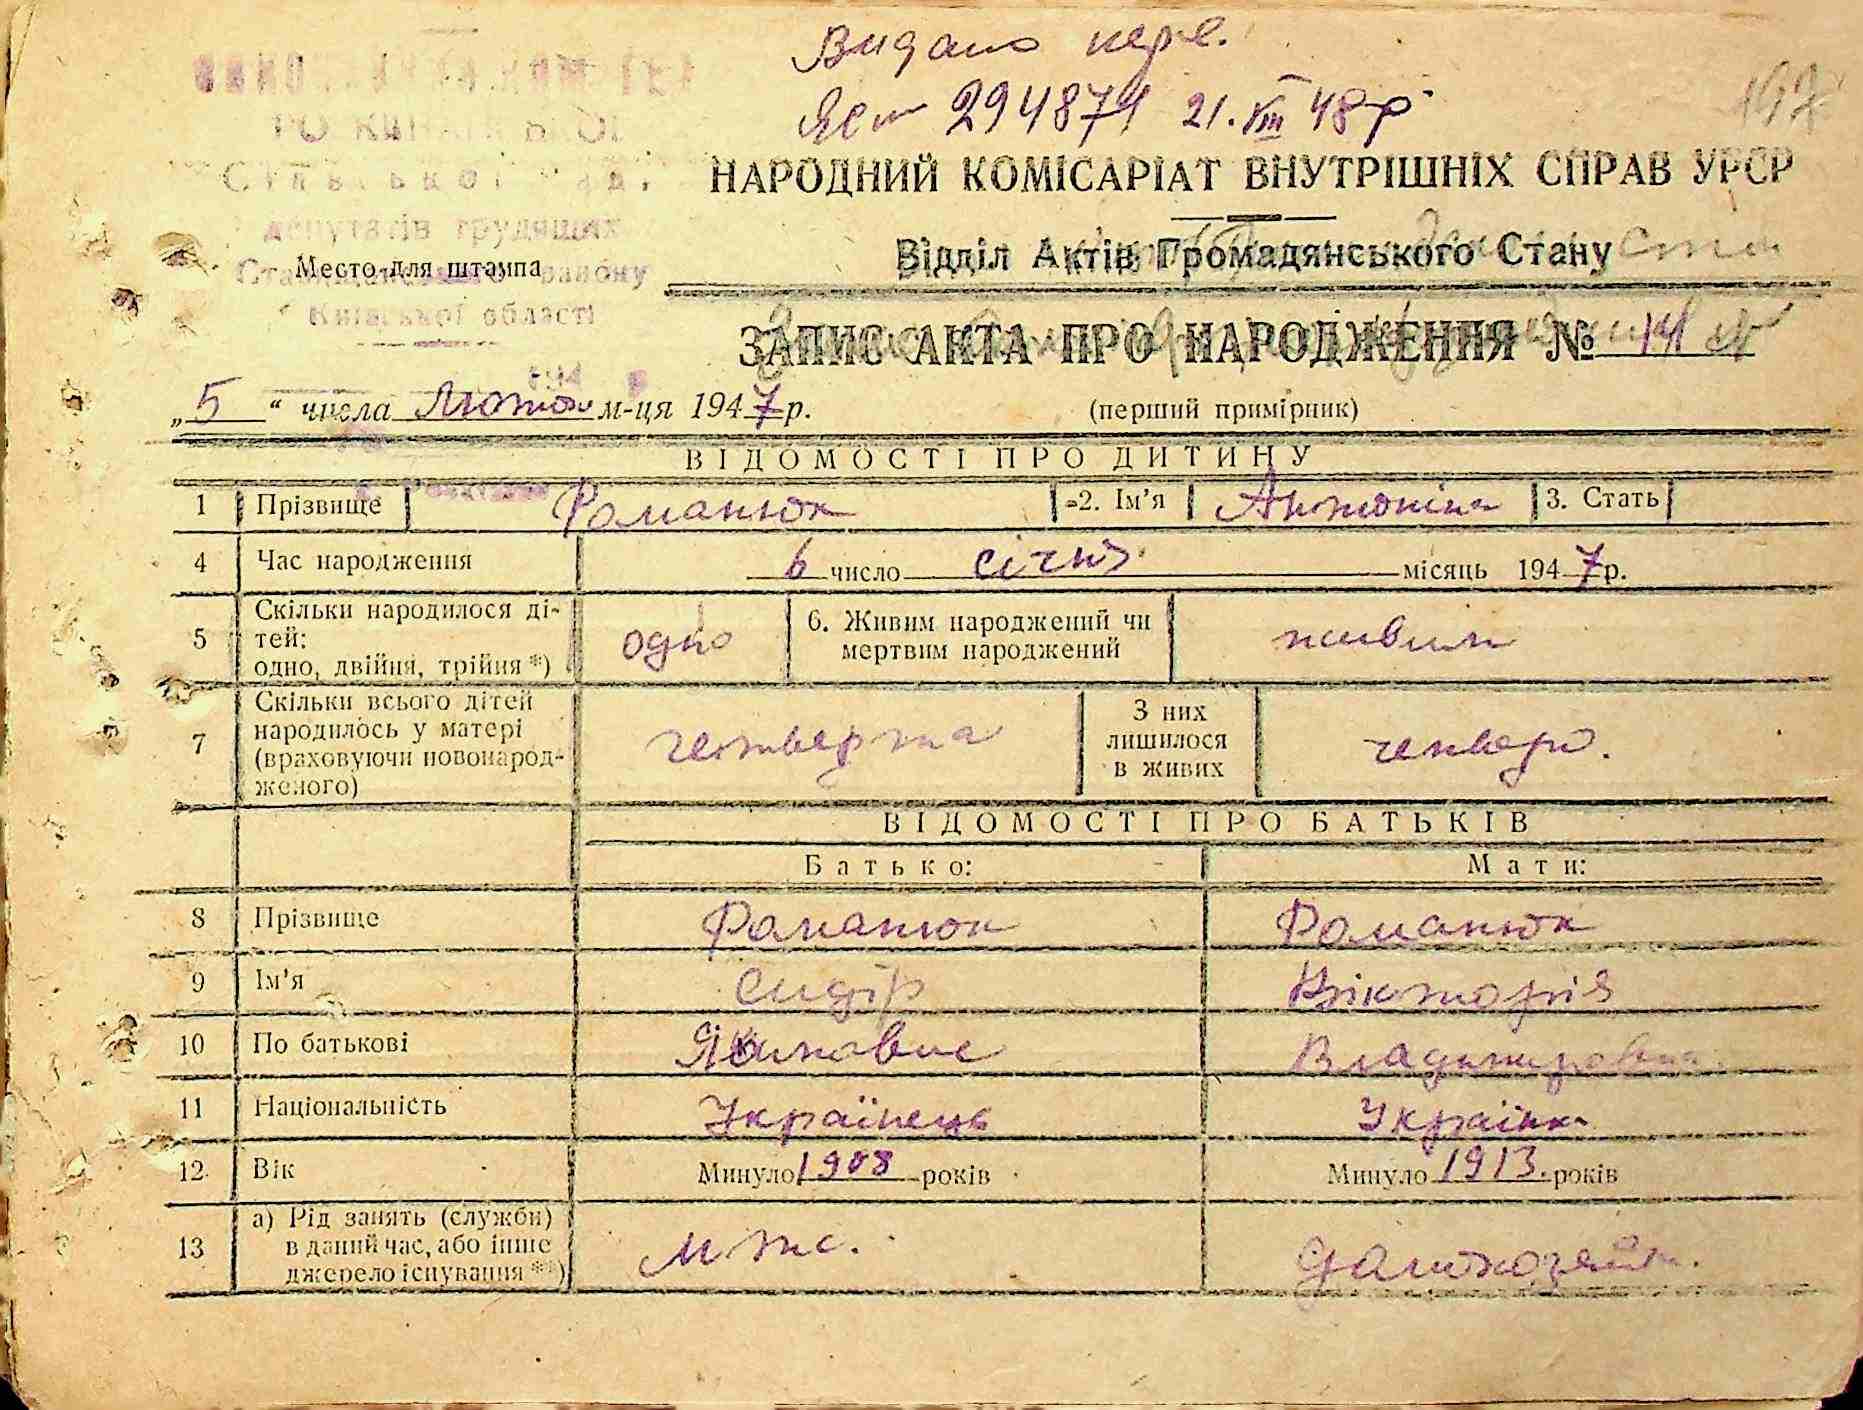 Видано
294871 21.VIII 48р
НАРОДНИЙ КОМІСАРІАТ ВНУТРІШНІХ СПРАВ УРСР
депутатів трудящих
Место для штампа
Відділ Актів Громадянського Стану
району
Київської області
ЗАПИС АКТА ПРО НАРОДЖЕННЯ № 14
194 р
„5“ числа Лютого м-ця 1947 р.
(перший примірник)
ВІДОМОСТІ ПРО ДИТИНУ
1 Прізвище Романюк 2. Ім'я Антоніна 3. Стать
4 Час народження 6 число січня місяць 1947 р.
5 Скільки народилося ді-
тей:
одно, двійня, трійня *)
одно
6. Живим народжений чи
мертвим народжений
живим
7 Скільки всього дітей
народилось у матері
(враховуючи новонарод-
женого)
четверта
З них
лишилося
в живих
четверо.
ВІДОМОСТІ ПРО БАТЬКІВ
Батько: Мати:
8 Прізвище Романюк Романюк
9 Ім'я Сидір Вікторія
10 По батькові Якимович Владимировна
11 Національність Українець Українка
12 Вік Минуло 1908 років Минуло 1913. років
13 а) Рід занять (служби)
в даний час, або інше
джерело існування **)
домохозяйк.